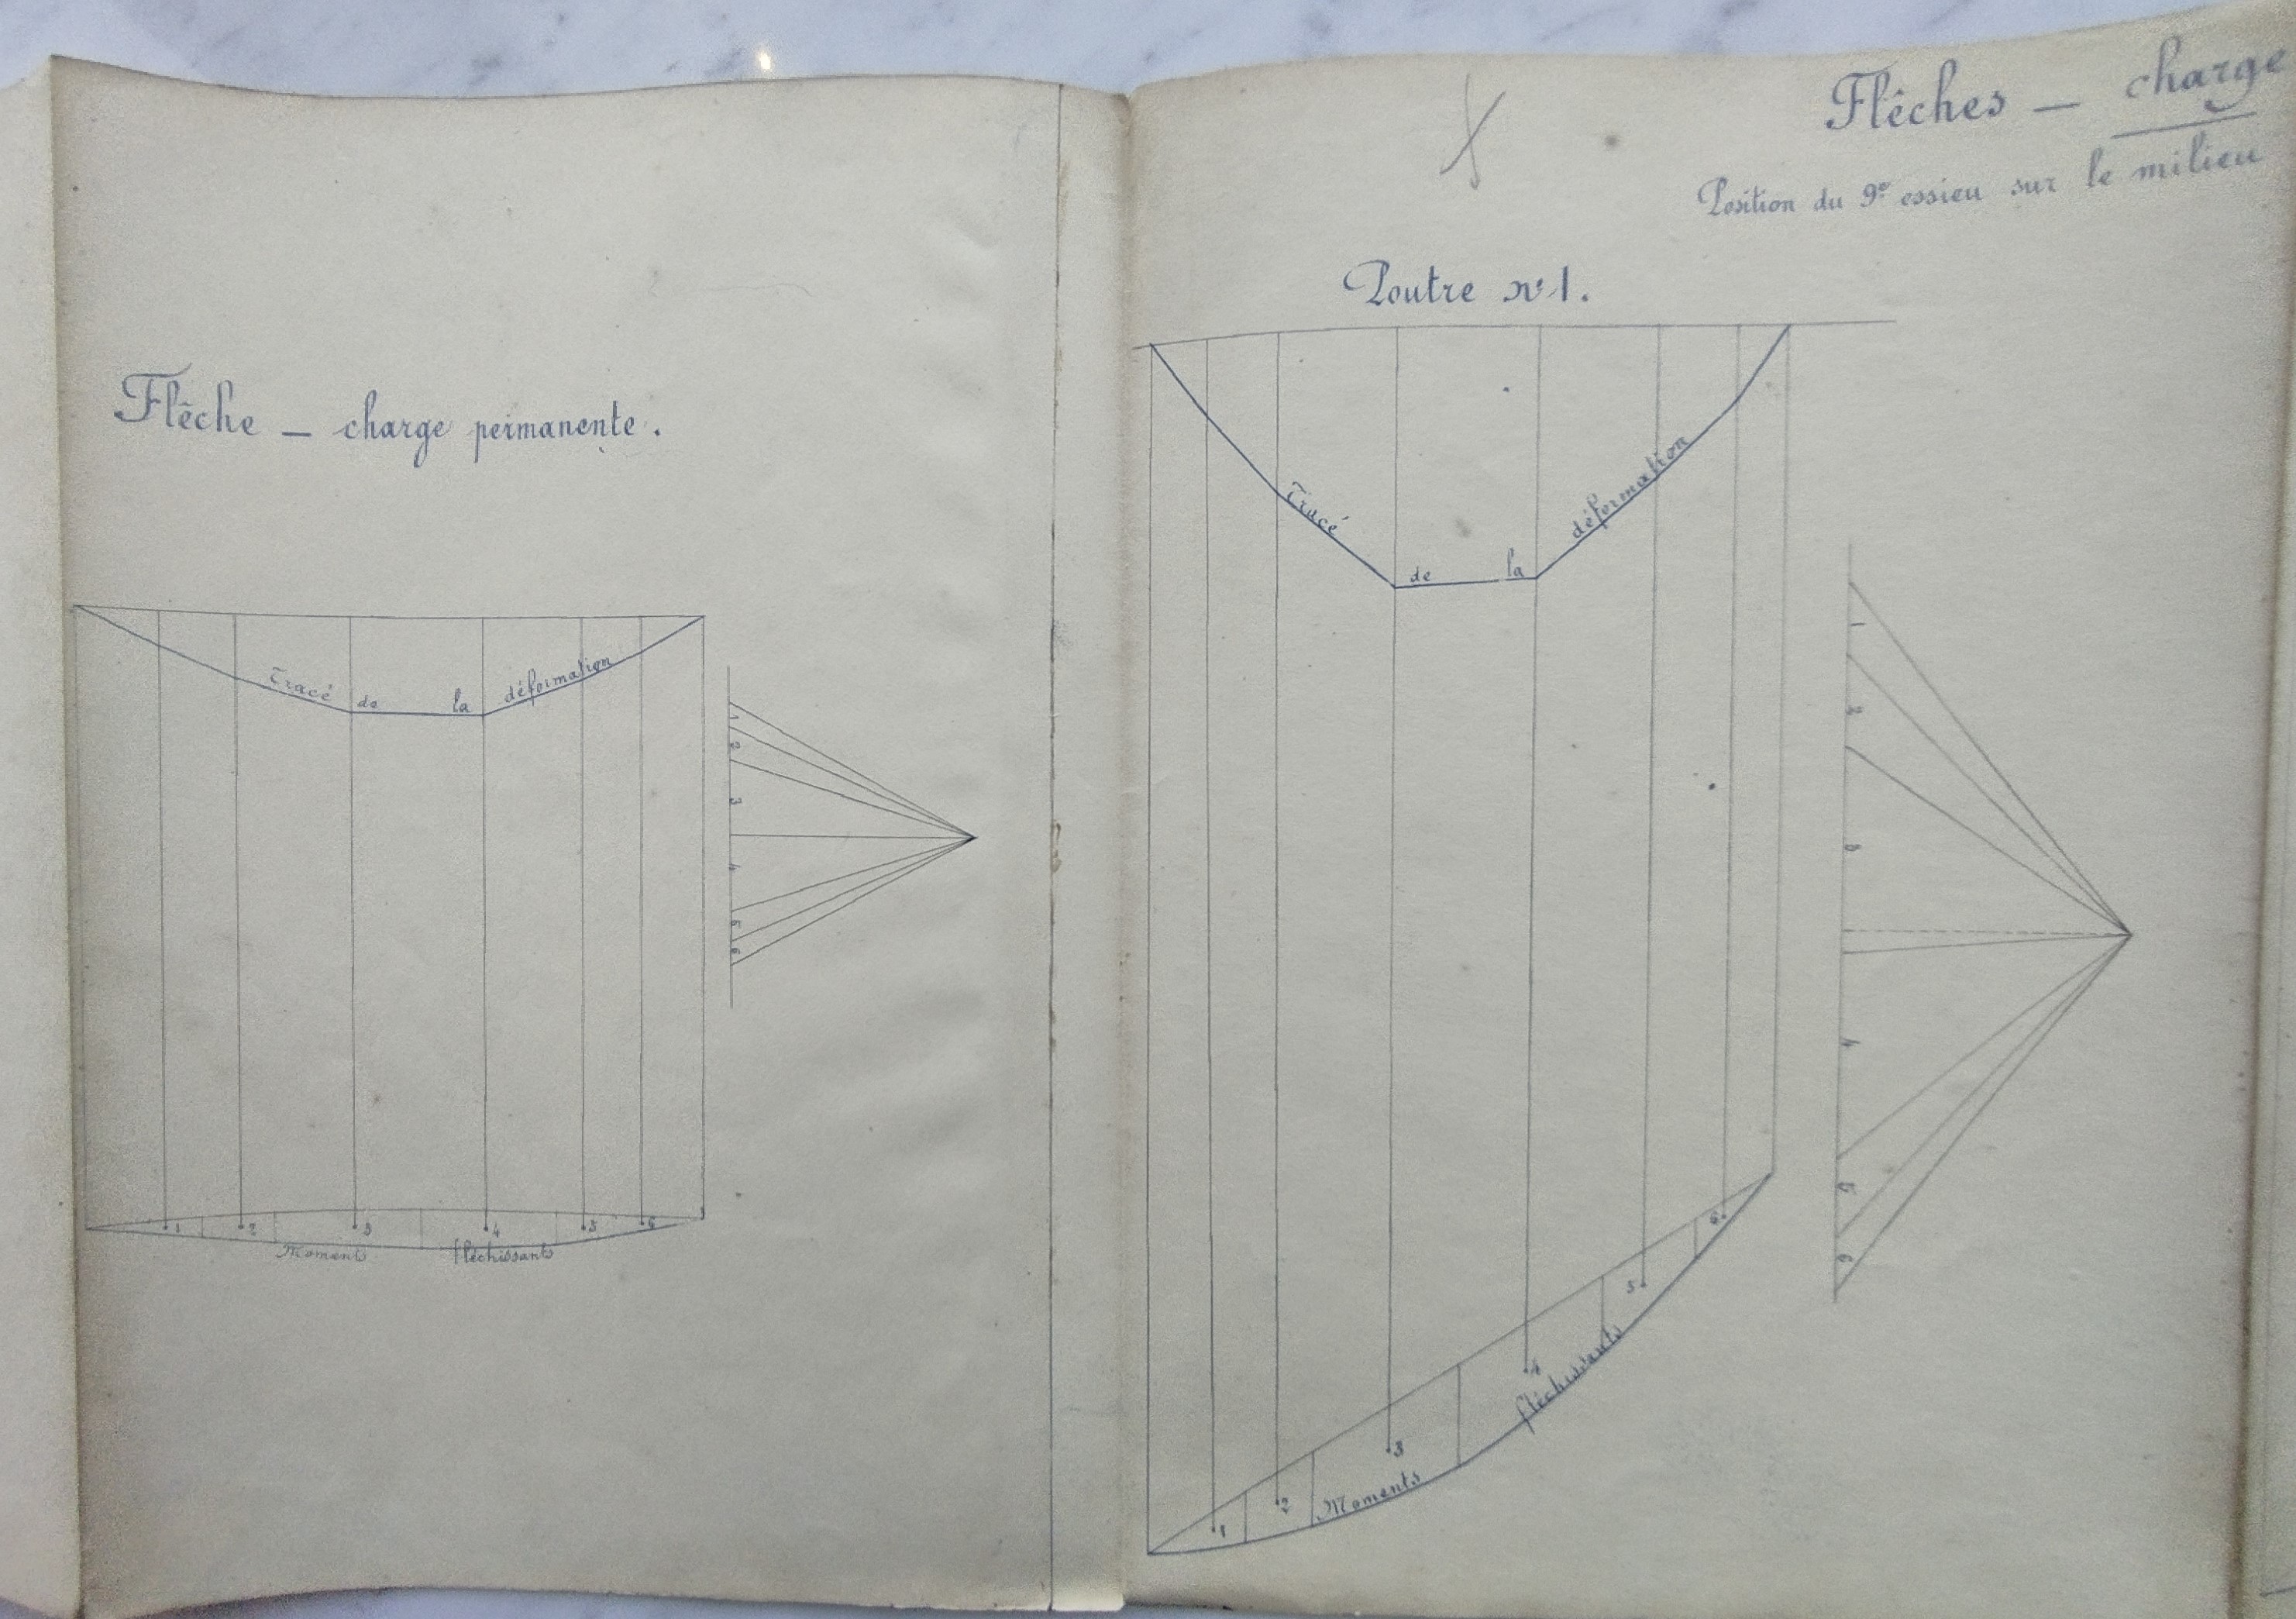 Flêche — charge permanente.
Tracé de la déformation
1
2
3
4
5
6
1 2 3 4 5 6
Moments fléchissants
Flêches — charge
Position du 9e essieu sur le milieu
Poutre no 1.
Tracé de la déformation
1
2
3
4
5
6
1 2 3 4 5 6
Moments fléchissants